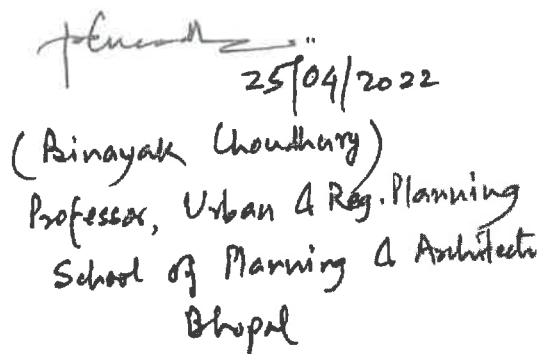 25/04/2022
(Binayak Choudhary)
Professor, Urban & Reg. Planning
School of Planning & Architect
Bhopal